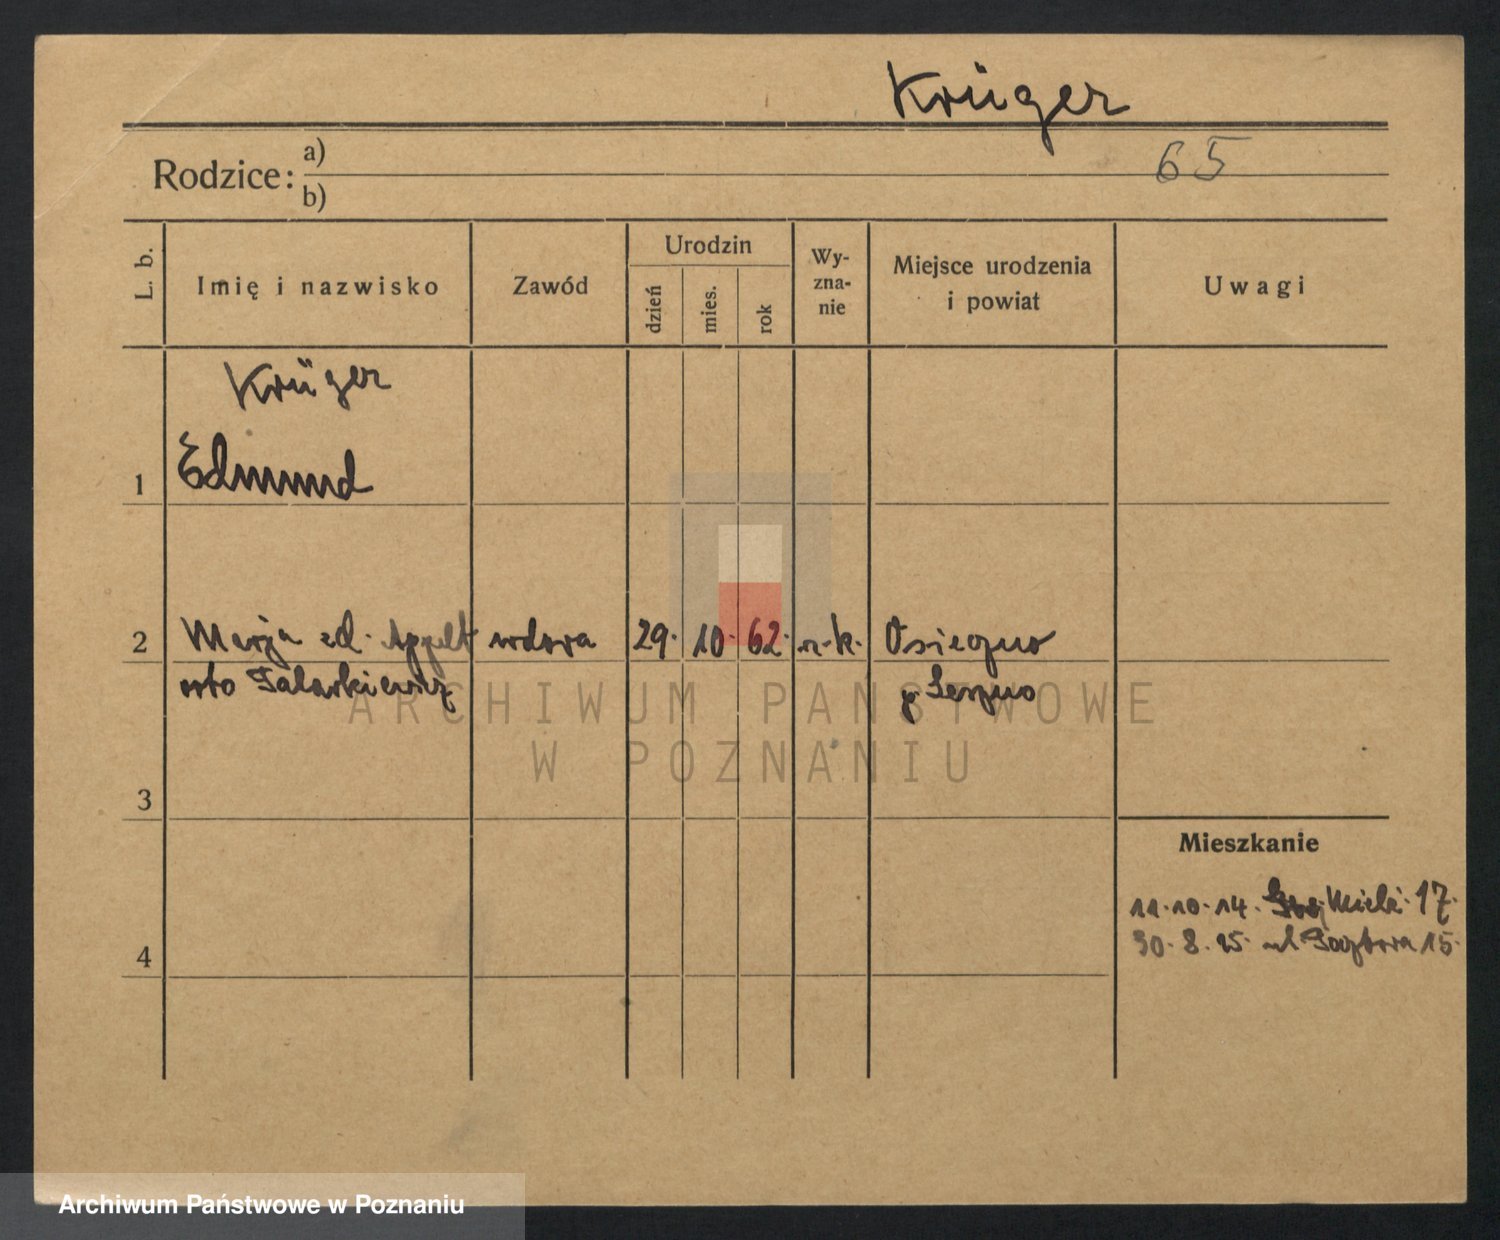 Krüger
65
Rodzice: a)
b)
L. b.
Imię i nazwisko
Zawód
Urodzin
dzień
mies.
rok
Wy-
zna-
nie
Miejsce urodzenia
i powiat
Uwagi
Krüger
1 Edmund
2 Marja zd. Appelt wdowa 29. 10. 62. r.-k. Osieczno
p. Leszno
ARCHIWUM PAŃSTWOWE
W POZNANIU
3
Mieszkanie
11.10.14. 17.
30.8.25. ul. 15.
4
Archiwum Państwowe w Poznaniu